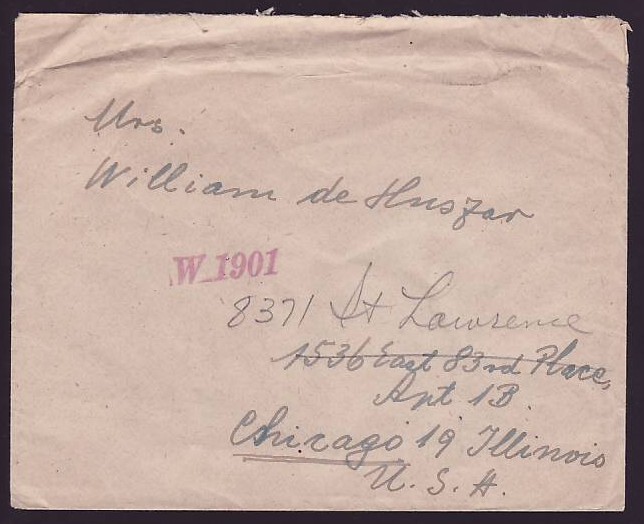 Mrs.
William de Huszar
W 1901
8371 St Lawrence
1536 East 83rd Place,
Apt 1B.
Chicago 19 Illinois
U. S. A.